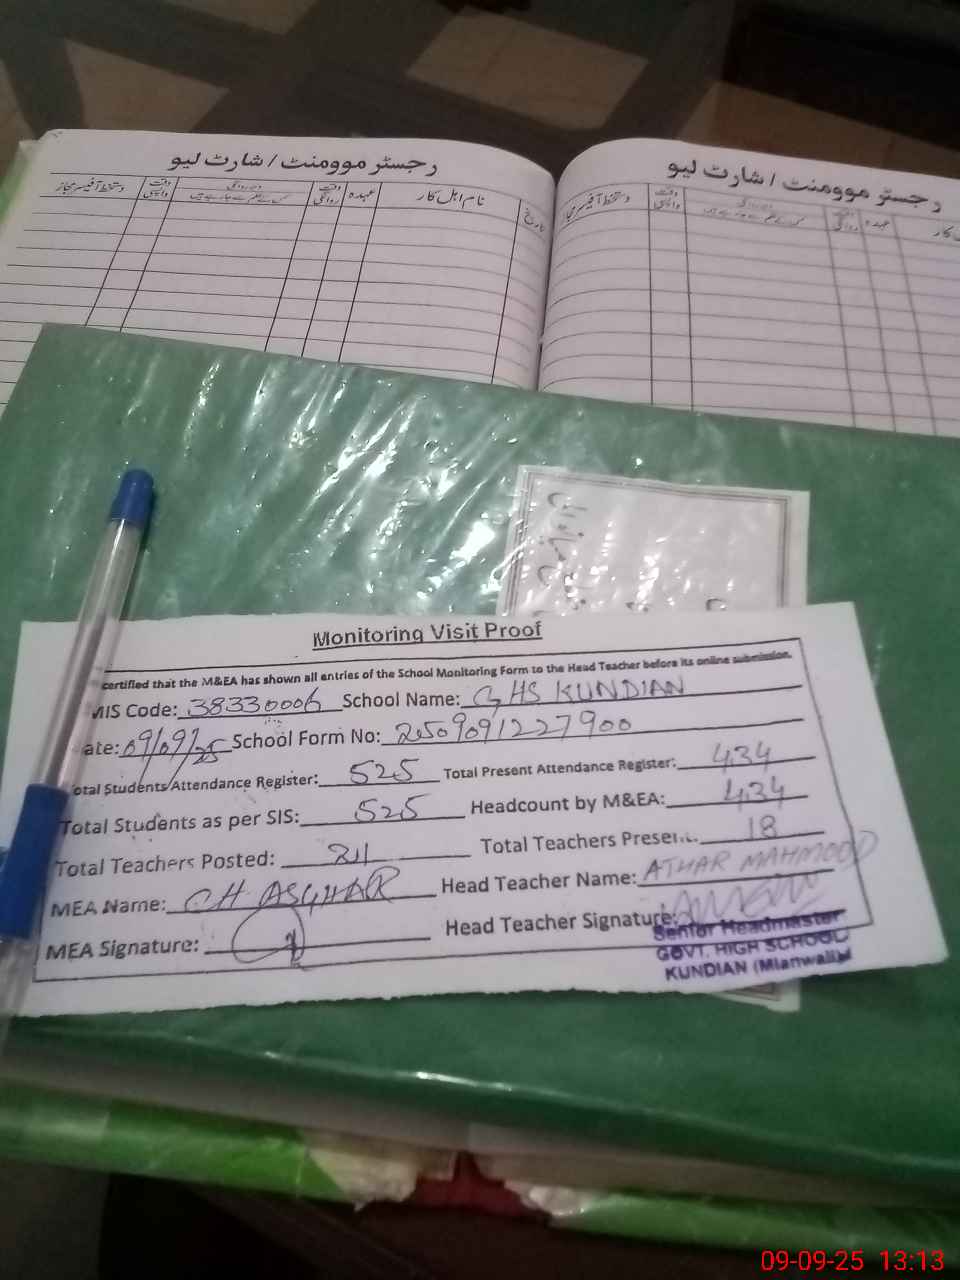 رجسٹر موومنٹ / شارٹ لیو
تاریخ نام اہل کار عہدہ وقت روانگی وقت واپسی دستخط آفیسر مجاز
رجسٹر موومنٹ / شارٹ لیو
عہدہ وقت روانگی وقت واپسی دستخط آفیسر مجاز
Monitoring Visit Proof
certified that the M&EA has shown all entries of the School Monitoring Form to the Head Teacher before its online submission.
MIS Code: 38330006 School Name: GHS KUNDIAN
ate: 09/09/25 School Form No: 2509091227900
otal Students Attendance Register: 525 Total Present Attendance Register: 434
Total Students as per SIS: 525 Headcount by M&EA: 434
Total Teachers Posted: Total Teachers Present: 18
MEA Name: CH ASGHAR Head Teacher Name: ATHAR MAHMOOD
MEA Signature: Head Teacher Signature:
Senior Headmaster
GOVT. HIGH SCHOOL
KUNDIAN (Mianwali)
09-09-25 13:13